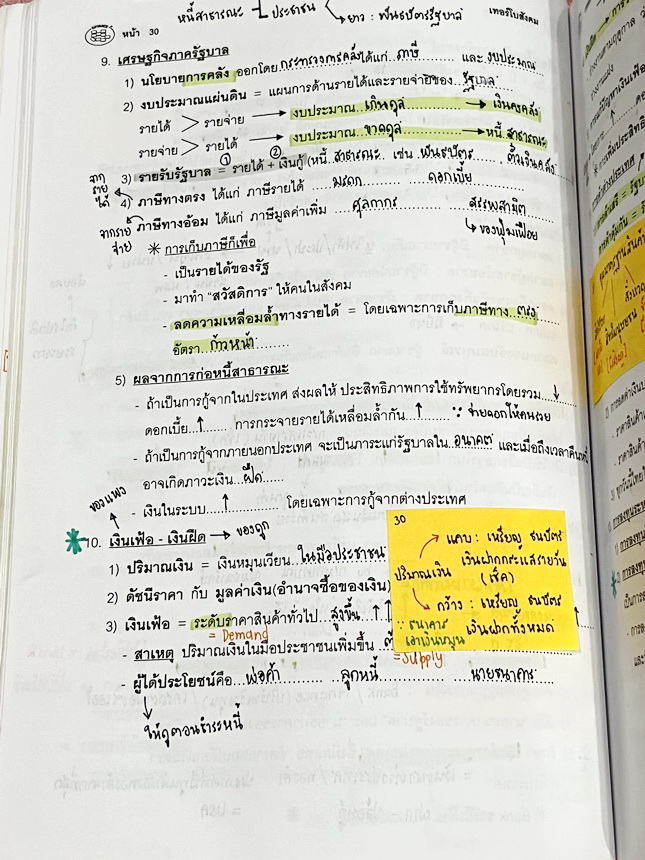 หนี้สาธารณะ ประชาชน
ยาว : พันธบัตรรัฐบาล
หน้า 30
เทอร์โบสังคม
9. เศรษฐกิจภาครัฐบาล
1) นโยบายการคลัง ออกโดยกระทรวงการคลังได้แก่ ภาษี และ งบประมาณ
2) งบประมาณแผ่นดิน = แผนการด้านรายได้และรายจ่ายของ รัฐบาล
รายได้ > รายจ่าย → งบประมาณ เกินดุล → เงินคงคลัง
รายจ่าย > รายได้ → งบประมาณ ขาดดุล → หนี้ สาธารณะ
① ②
3) รายรับรัฐบาล = รายได้ + เงินกู้ (หนี้ สาธารณะ เช่น พันธบัตร , ตั๋วเงินคลัง
จากรายได้
4) ภาษีทางตรง ได้แก่ ภาษีรายได้ มรดก ดอกเบี้ย
จากรายจ่าย
ภาษีทางอ้อม ได้แก่ ภาษีมูลค่าเพิ่ม ศุลกากร สรรพสามิต
↳ ของฟุ่มเฟือย
* การเก็บภาษีก็เพื่อ
- เป็นรายได้ของรัฐ
- มาทำ "สวัสดิการ" ให้คนในสังคม
- ลดความเหลื่อมล้ำทางรายได้ = โดยเฉพาะการเก็บภาษีทาง ตรง
อัตรา ก้าวหน้า
5) ผลจากการก่อหนี้สาธารณะ
- ถ้าเป็นการกู้จากในประเทศ ส่งผลให้ ประสิทธิภาพการใช้ทรัพยากรโดยรวม ↓
ดอกเบี้ย ↑ การกระจายรายได้เหลื่อมล้ำกัน ↑ ∵ จ่ายดอกให้คนรวย
- ถ้าเป็นการกู้จากภายนอกประเทศ จะเป็นภาระแก่รัฐบาลใน อนาคต และเมื่อถึงเวลาคืนหนี้
อาจเกิดภาวะเงิน ฝืด
- เงินในระบบ ↑ โดยเฉพาะการกู้จากต่างประเทศ
ของแพง
10. เงินเฟ้อ - เงินฝืด → ของถูก
1) ปริมาณเงิน = เงินหมุนเวียน ในมือประชาชน
2) ดัชนีราคา กับ มูลค่าเงิน(อำนาจซื้อของเงิน)
3) เงินเฟ้อ = ระดับราคาสินค้าทั่วไป สูงขึ้น ↑
= Demand
- สาเหตุ ปริมาณเงินในมือประชาชนเพิ่มขึ้น
= Supply
- ผู้ได้ประโยชน์คือ พ่อค้า ลูกหนี้ นายธนาคาร
ให้ดูตอนชำระหนี้
30
แคบ : เหรียญ ธนบัตร
ปริมาณเงิน เงินฝากกระแสรายวัน
(เช็ค)
กว้าง : เหรียญ ธนบัตร
∵ ธนาคาร เงินฝากทั้งหมด
เอาเงินหมุน